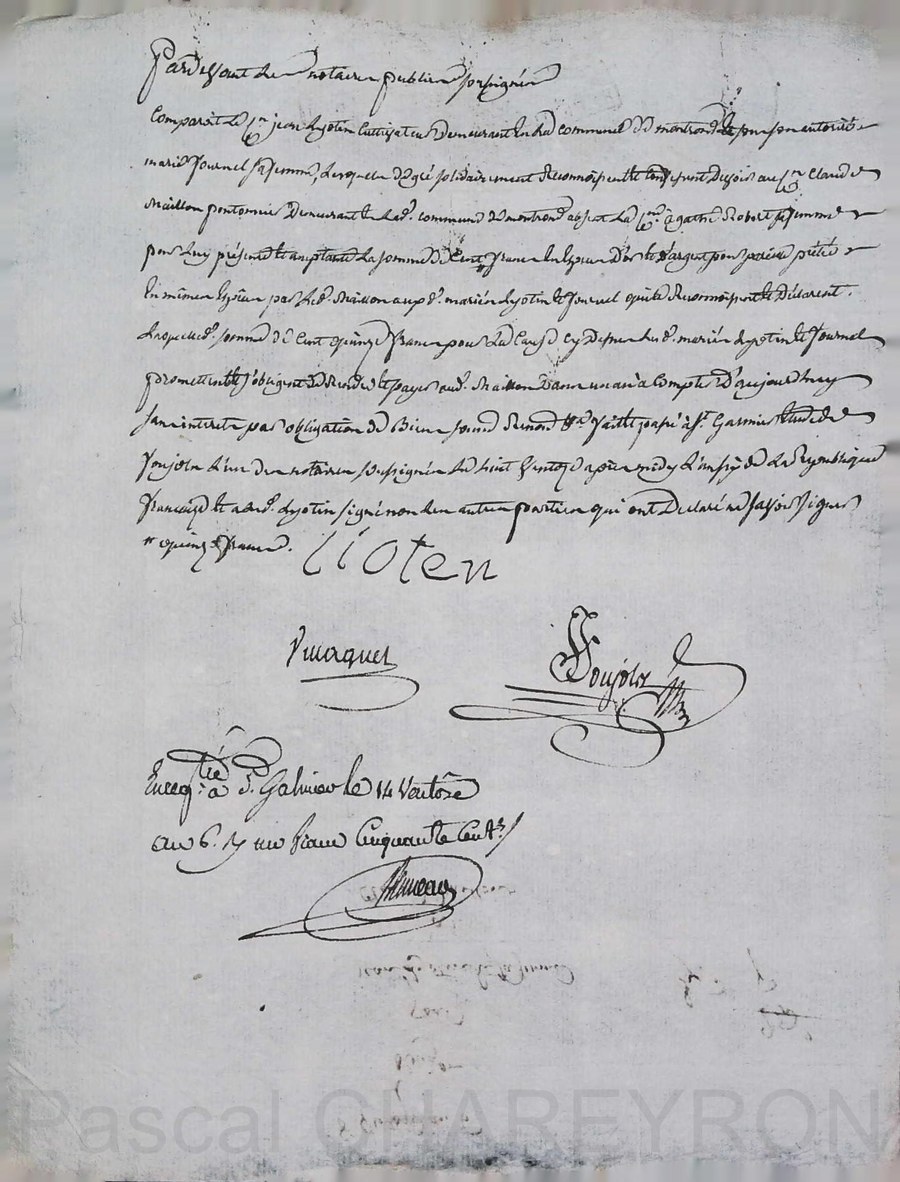 Pardevant Les notaires publics soussignés
Comparoit Le Cn jean Lyotin Cultivateur Demeurant En La commune de montrond Et sous son autorité
marie fournel sa femme, Lesquels de Gré solidairement Reconnoissent Et Confessent Devoir au Cn Claude
Maillon pontonnier Demeurant En Lad. commune de montrond absent La Cne agathe Robert sa femme
pour Luy présente Et acceptante La somme de Cent francs En Espèces D'or Et D'argent pour pareille prêtée
En mêmes Espèces par Led. Maillon aux d. mariés Lyotin Et fournel qui Le Reconnoissent Et Déclarent.
Laquelle d. somme de Cent quinze francs pour La Cause cy Dessus Les d. mariés Lyotin Et fournel
promettent Et s'obligent de Rendre Et payer aud. Maillon Dans un an à Compter D'aujourd'huy
sans interets par obligation de Biens soumis Renond Et Fait Et passé à St. Garmier Etude de
Soujolx L'un des notaires soussignés Le huit Ventose après midy L'an six de La République
française Et a Led. Lyotin signé non Les autres parties qui ont Déclaré ne savoir signer
quinze francs.
lioten
Soujolx
Enregtré à St. Galmier le 14 Ventôse
an 6. Ry un franc Cinquante Cent.s
Pascal CHAREYRON